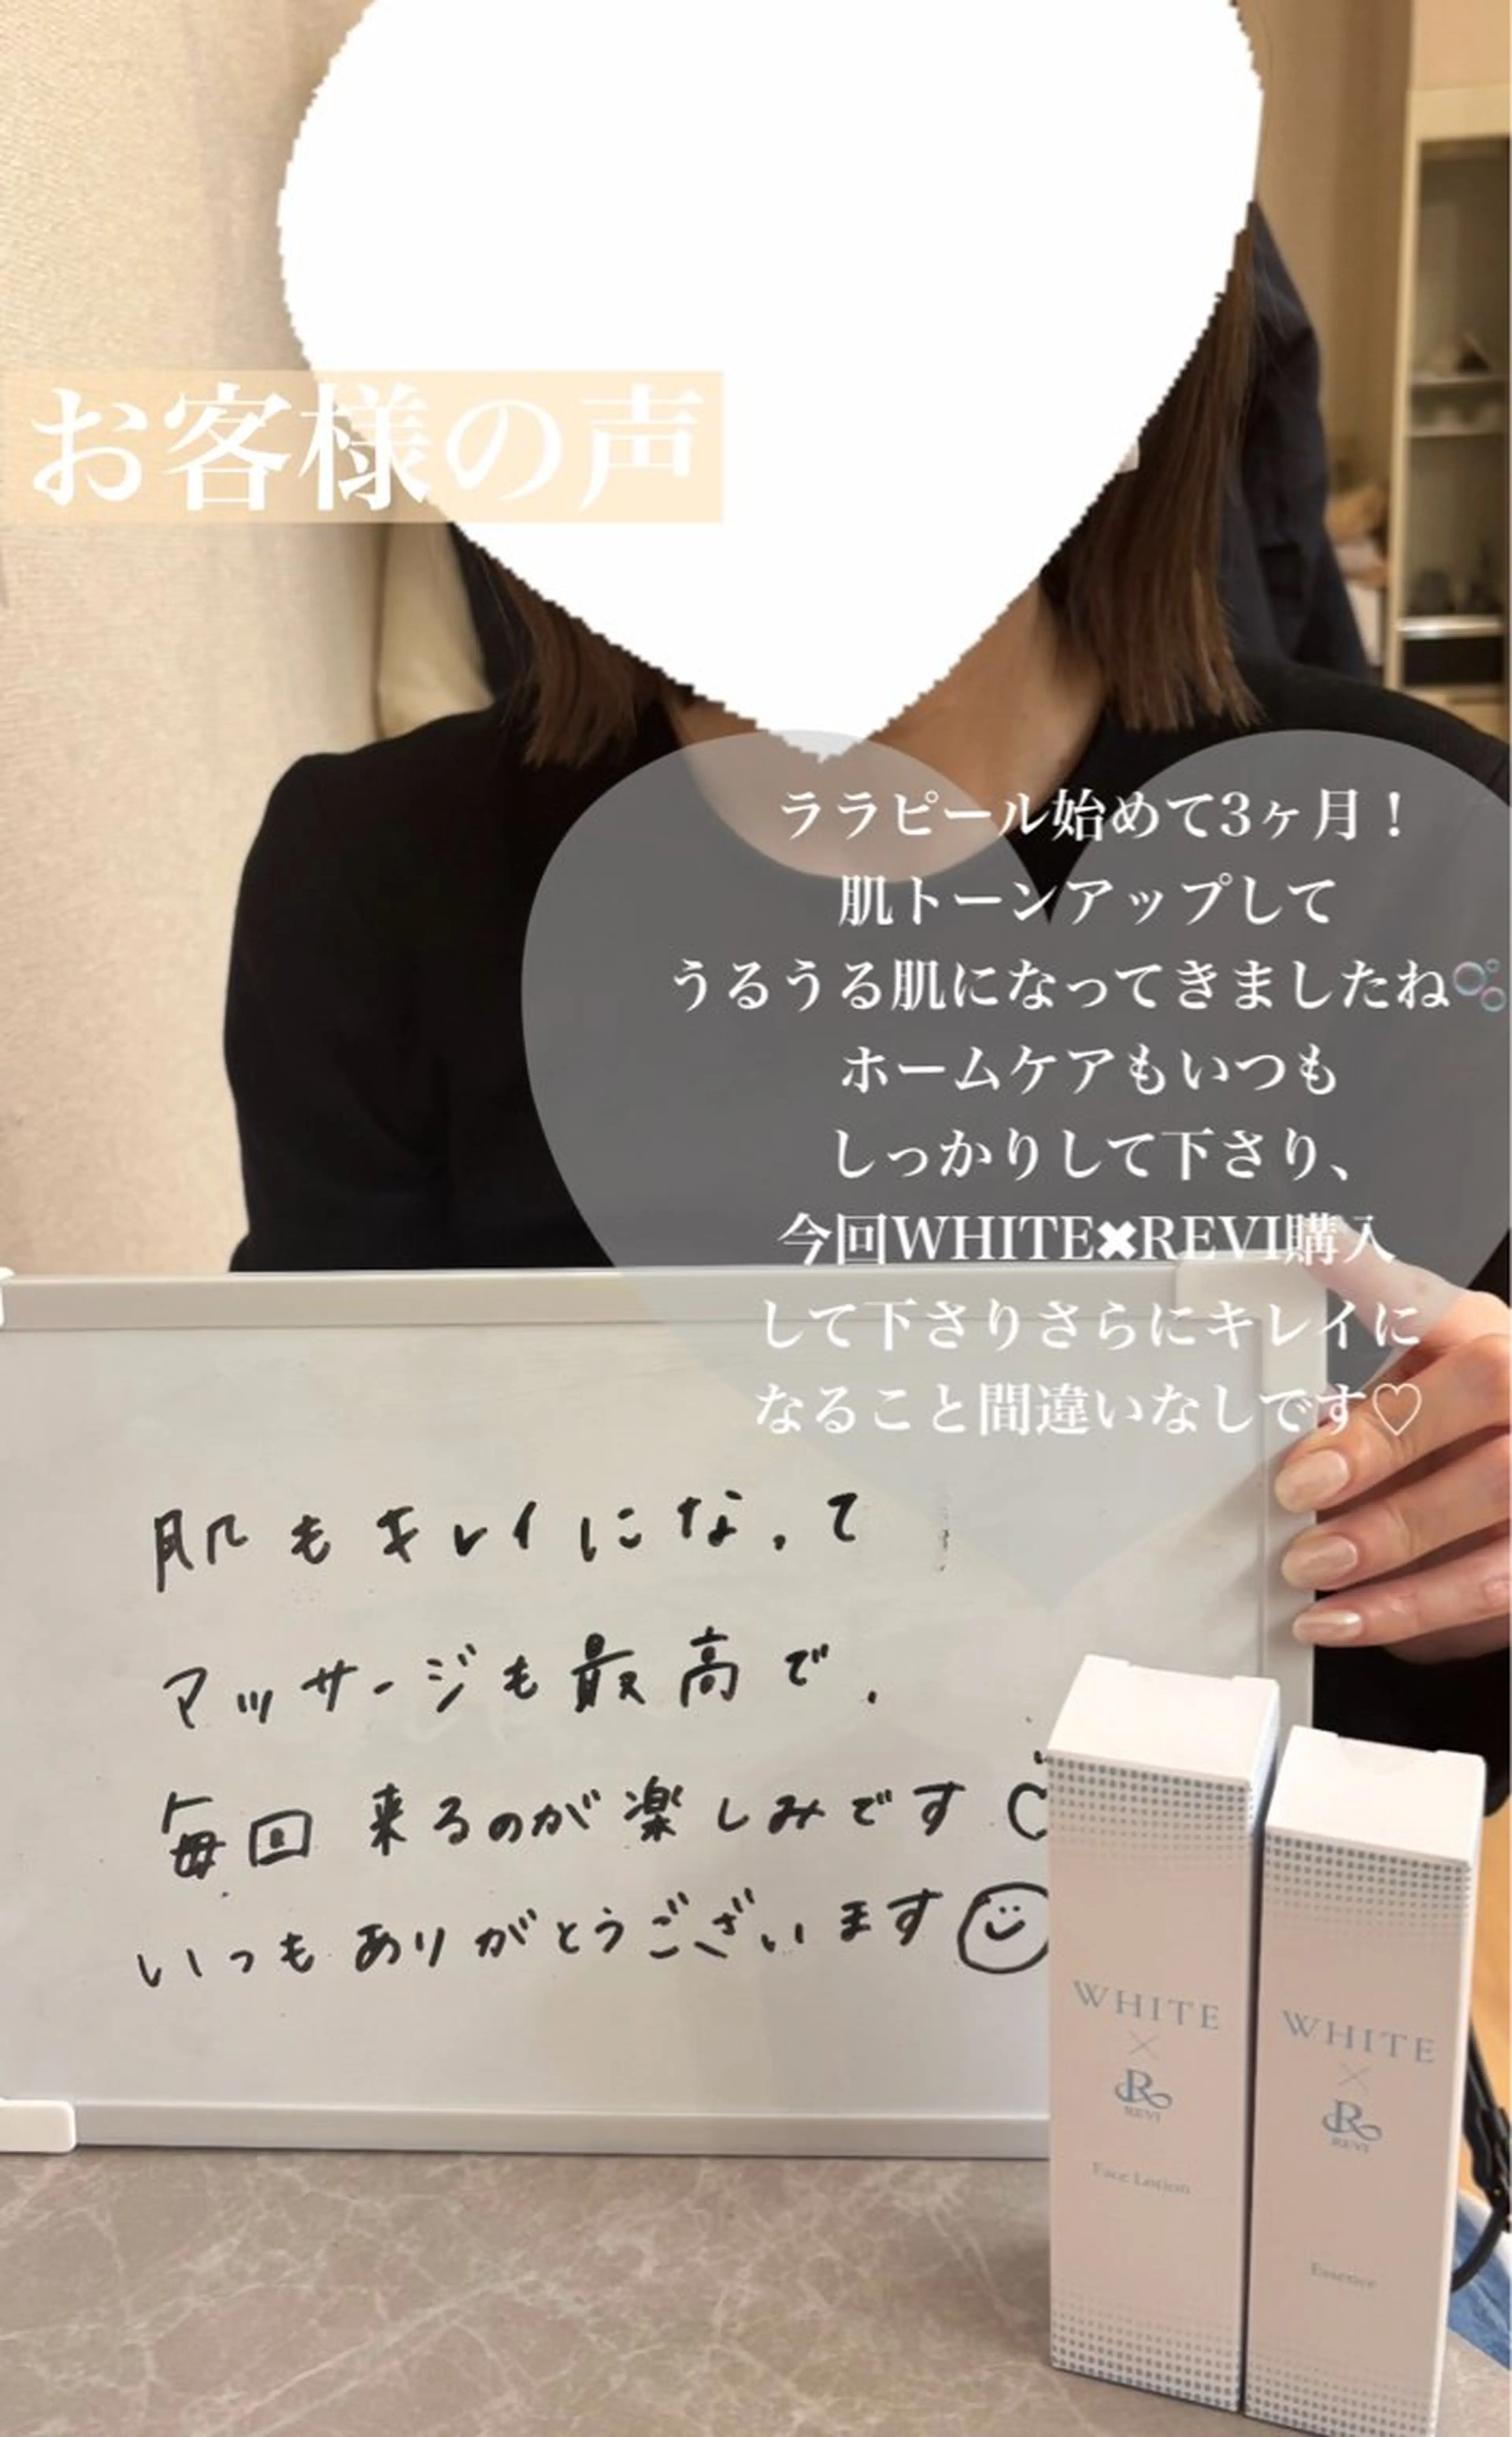 お客様の声
ララピール始めて3ヶ月！
肌トーンアップして
うるうる肌になってきましたね🫧
ホームケアもいつも
しっかりして下さり、
今回WHITE✖REVI購入
して下さりさらにキレイに
なること間違いなしです♡
肌もキレイになって
マッサージも最高で、
毎回来るのが楽しみです
いつもありがとうございます
WHITE
×
R
REVI
Face Lotion
WHITE
×
R
REVI
Essence